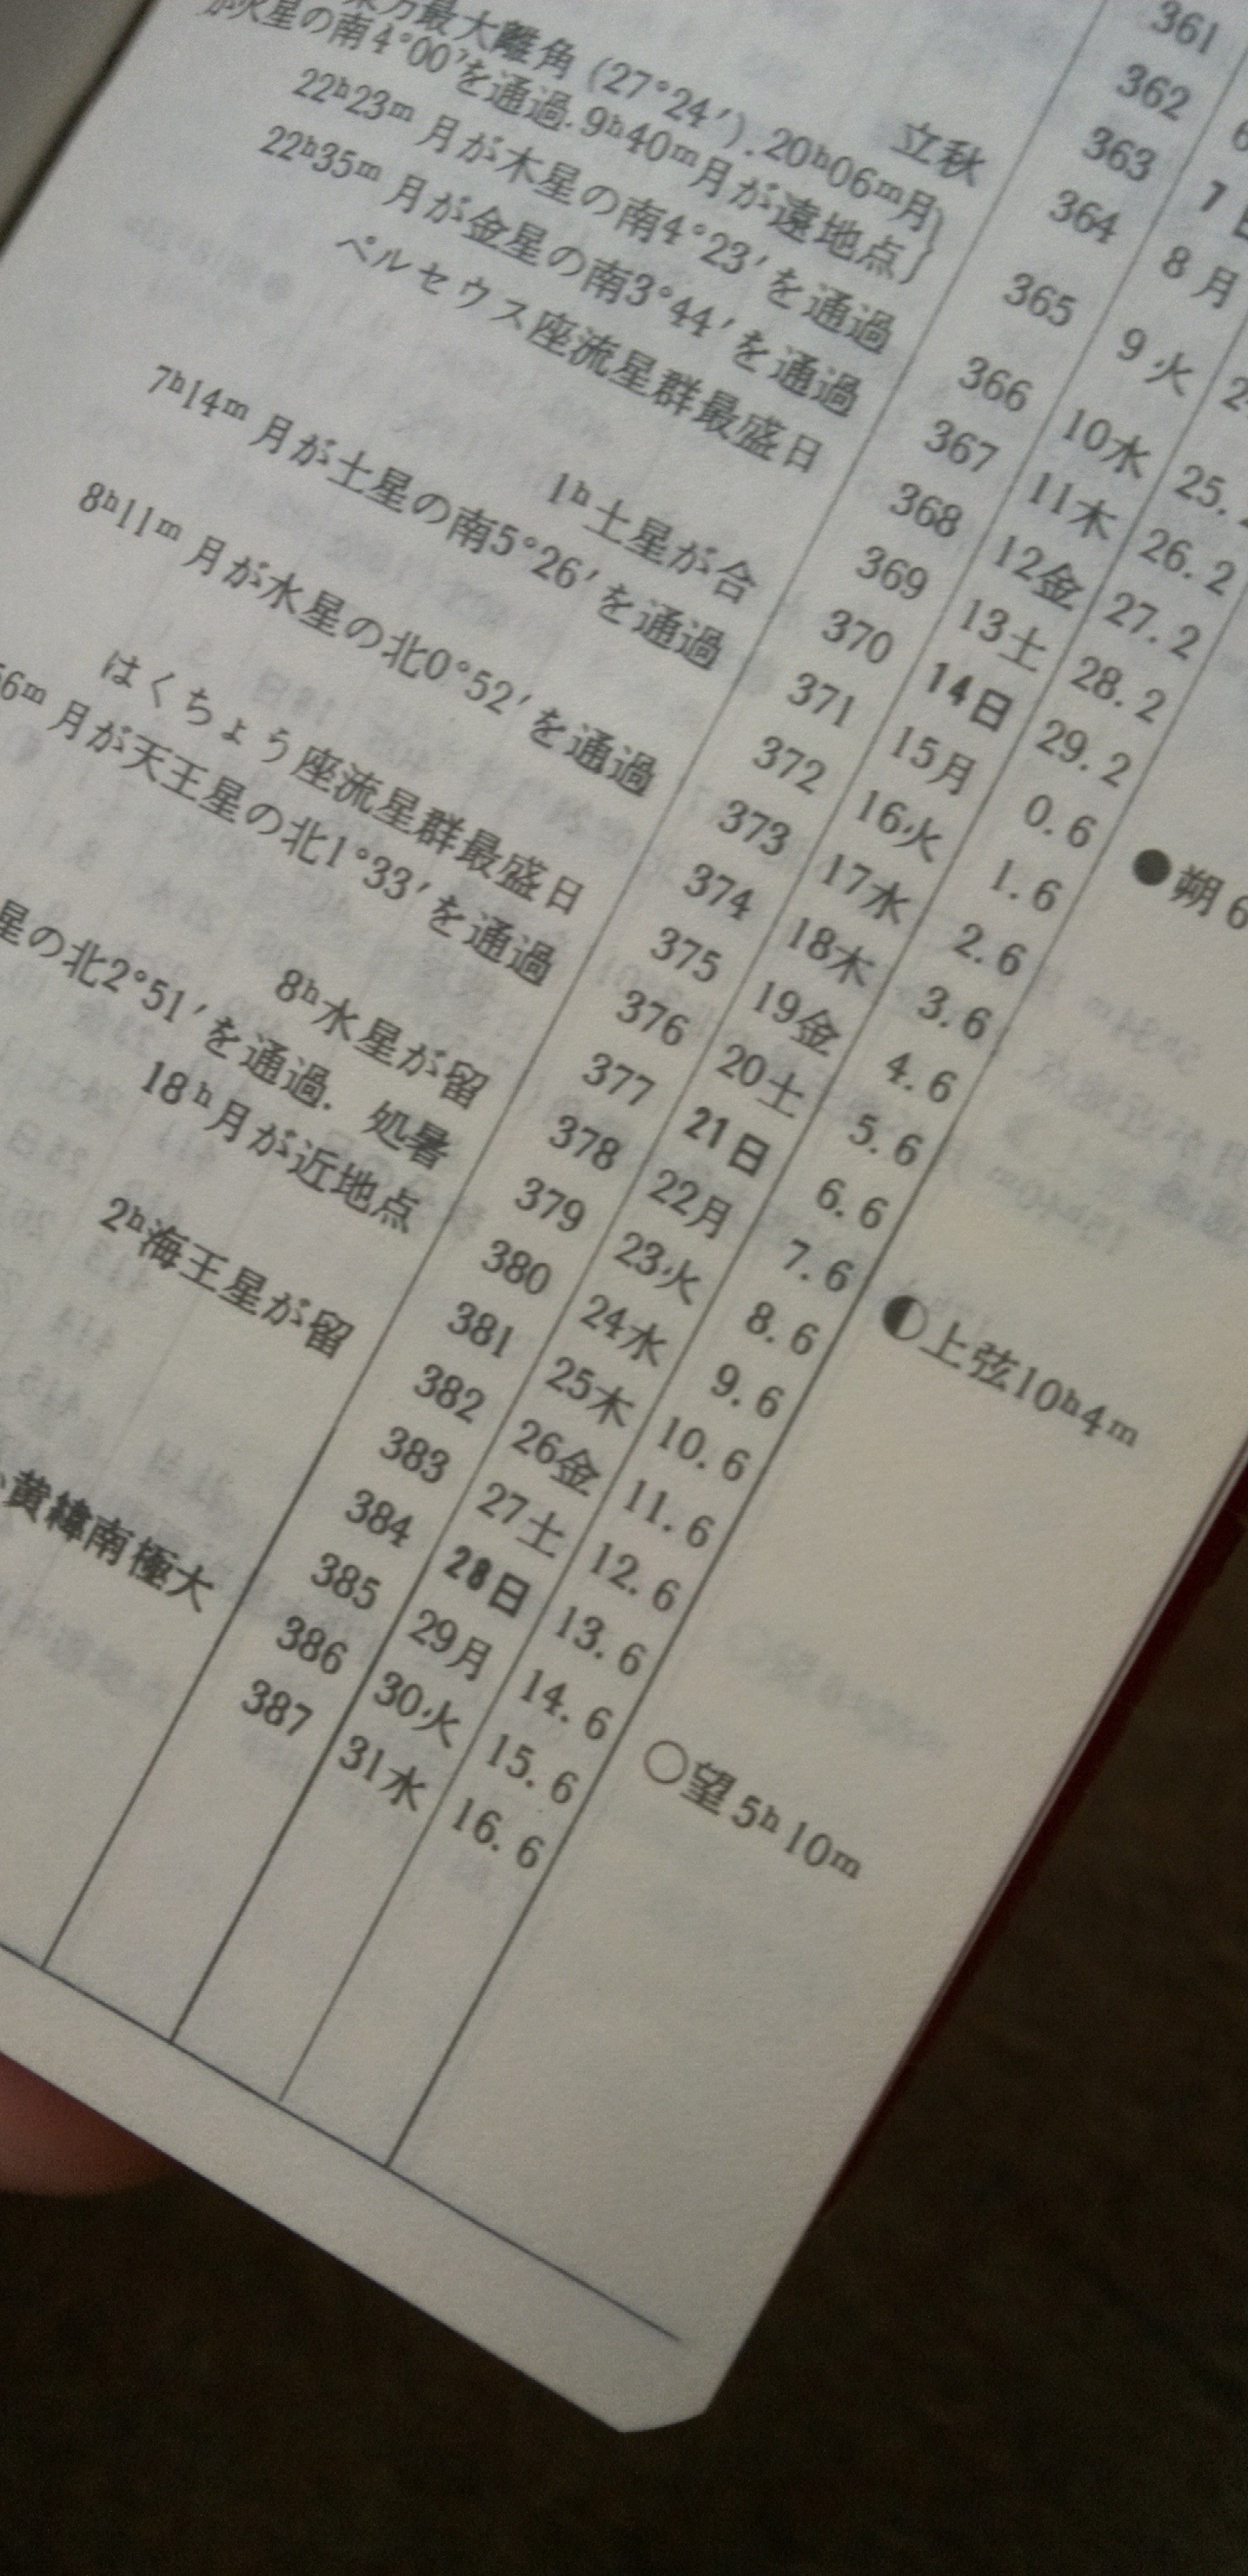 361
362
363 7日
立秋 364 8月
最大離角(27°24′).20ʰ06ᵐ月
火星の南4°00′を通過.9ʰ40ᵐ月が遠地点 365 9火
22ʰ23ᵐ 月が木星の南4°23′を通過 366 10水 25.
22ʰ35ᵐ 月が金星の南3°44′を通過 367 11木 26.2
ペルセウス座流星群最盛日 368 12金 27.2
369 13土 28.2
370 14日 29.2
1ʰ土星が合 371 15月 0.6 ●朔6
7ʰ14ᵐ 月が土星の南5°26′を通過 372 16火 1.6
373 17水 2.6
8ʰ11ᵐ 月が水星の北0°52′を通過 374 18木 3.6
375 19金 4.6
はくちょう座流星群最盛日 376 20土 5.6
56ᵐ 月が天王星の北1°33′を通過 377 21日 6.6
378 22月 7.6 上弦10ʰ4ᵐ
8ʰ水星が留 379 23火 8.6
星の北2°51′を通過. 処暑 380 24水 9.6
18ʰ月が近地点 381 25木 10.6
382 26金 11.6
2ʰ海王星が留 383 27土 12.6
384 28日 13.6
385 29月 14.6 ○望5ʰ10ᵐ
386 30火 15.6
黄緯南極大 387 31水 16.6